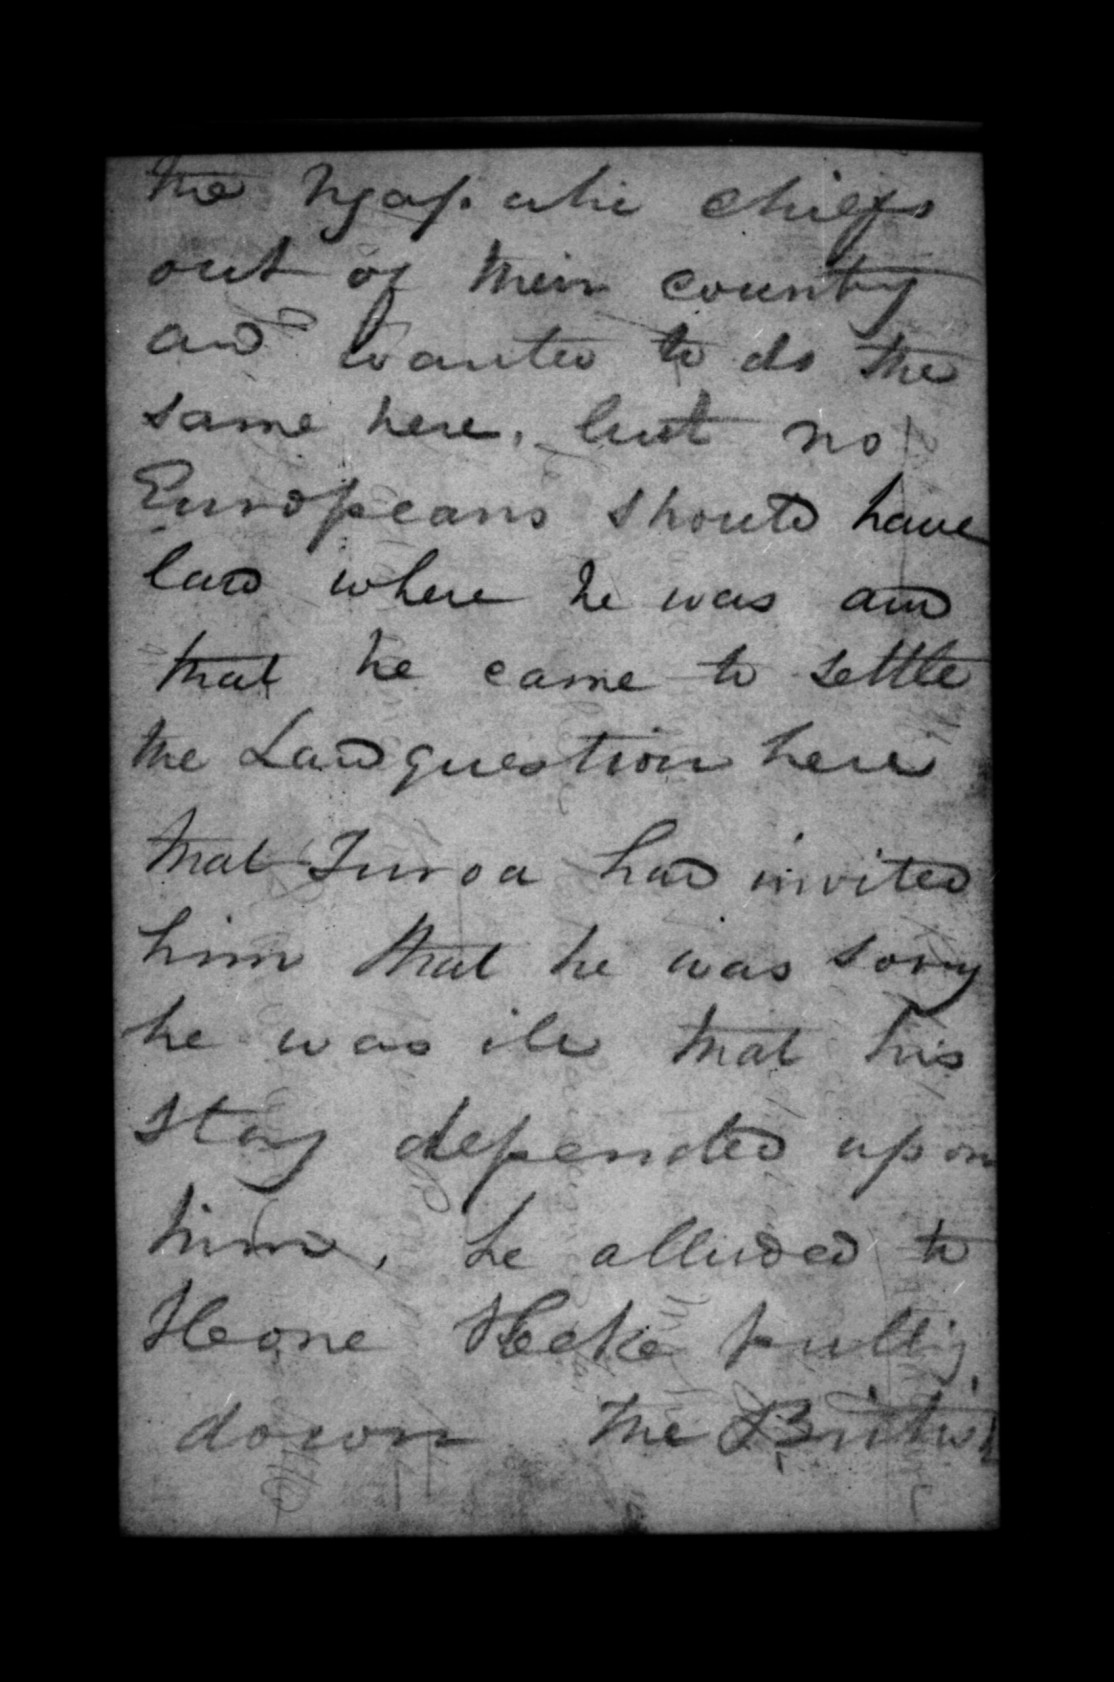 the Ngapuhi chiefs
out of their country
and wanted to do the
same here, but no
Europeans should have
land where he was and
that he came to settle
the Land question here
that Turoa had invited
him that he was sorry
he was ill that his
stay depended upon
him, he alluded to
Heone Heke pullig
down the British